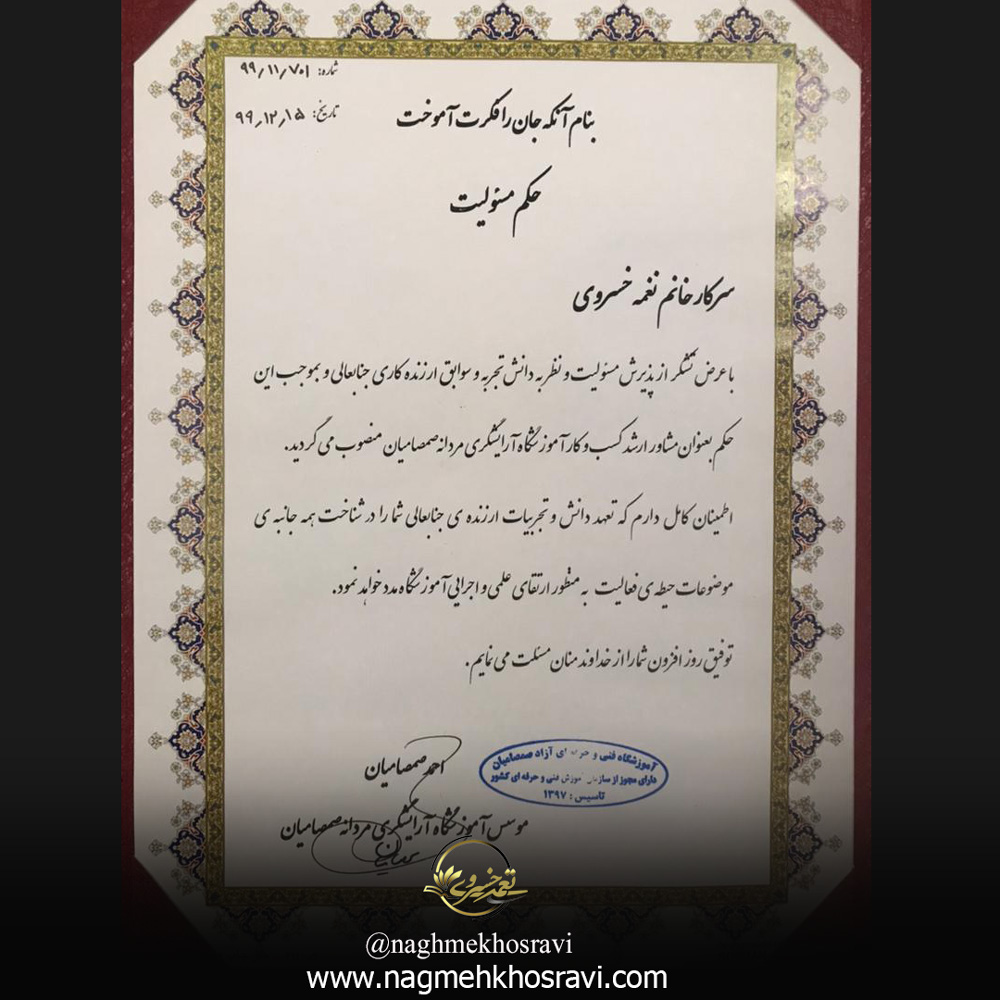 شماره: ۹۹٫۱۱٫۷۰۱
تاریخ: ۹۹٫۱۲٫۱۵
بنام آنکه جان را فکرت آموخت
حکم مسئولیت
سرکار خانم نغمه خسروی
با عرض تشکر از پذیرش مسئولیت و نظر به دانش تجربه و سوابق ارزنده کاری جنابعالی و بموجب این
حکم بعنوان مشاور ارشد کسب و کار آموزشگاه آرایشگری مردانه صمصامیان منصوب می گردید.
اطمینان کامل دارم که تعهد دانش و تجربیات ارزنده ی جنابعالی شما را در شناخت همه جانبه ی
موضوعات حیطه ی فعالیت به منظور ارتقای علمی و اجرایی آموزشگاه مدد خواهد نمود.
توفیق روز افزون شما را از خداوند منان مسئلت می نمایم.
آموزشگاه فنی و حرفه ای آزاد صمصامیان
دارای مجوز از سازمان آموزش فنی و حرفه ای کشور
تاسیس : ۱۳۹۷
احمد صمصامیان
موسس آموزشگاه آرایشگری مردانه صمصامیان
نغمه خسروی
@naghmekhosravi
www.nagmehkhosravi.com